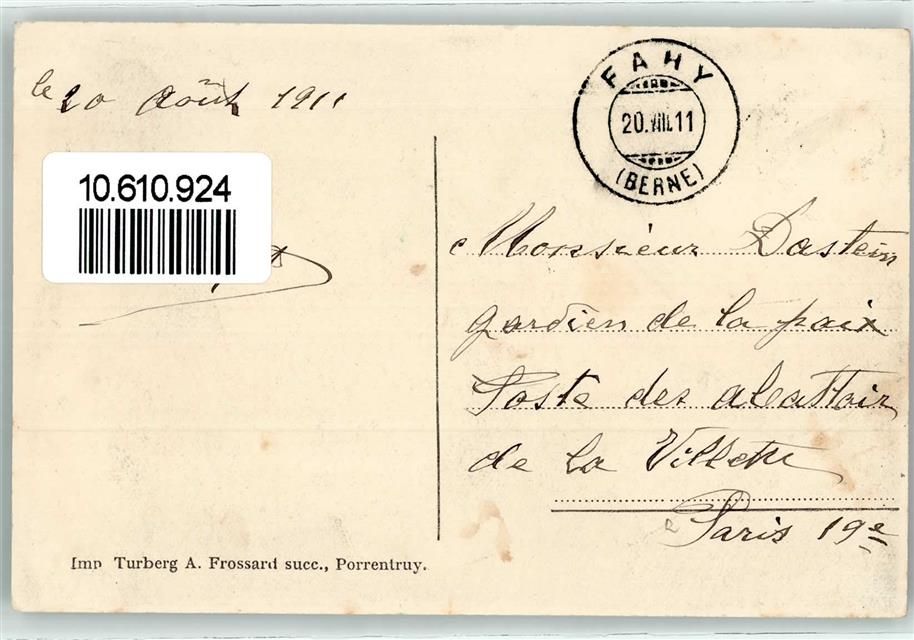 le 20 Août 1911
10.610.924
FAHY
20.VIII.11
(BERNE)
Monsieur Dastein
gardien de la paix
Poste des abattoir
de la Villette
Paris 19e
Imp Turberg A. Frossard succ., Porrentruy.